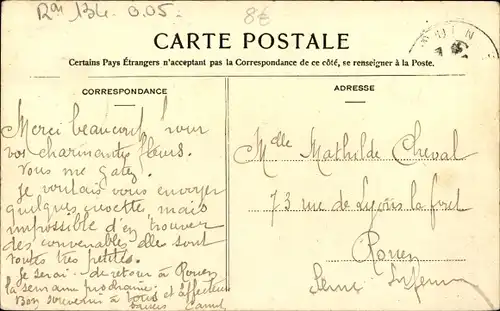 134 0.05.
8€
CARTE POSTALE
Certains Pays Étrangers n'acceptant pas la Correspondance de ce côté, se renseigner à la Poste.
CORRESPONDANCE
Merci beaucoup pour
vos charmantes fleurs.
Vous me gatez.
Je voulais vous envoyer
quelques mais
impossible d'en trouver
des convenables elles sont
toutes très petites.
Je serai de retour à Rouen
la semaine prochaine.
Bon souvenir à vous et affectueux
baisers
ADRESSE
Melle Mathilde Cheval
73 rue de Lyons la foret
Rouen
Seine Inferieure